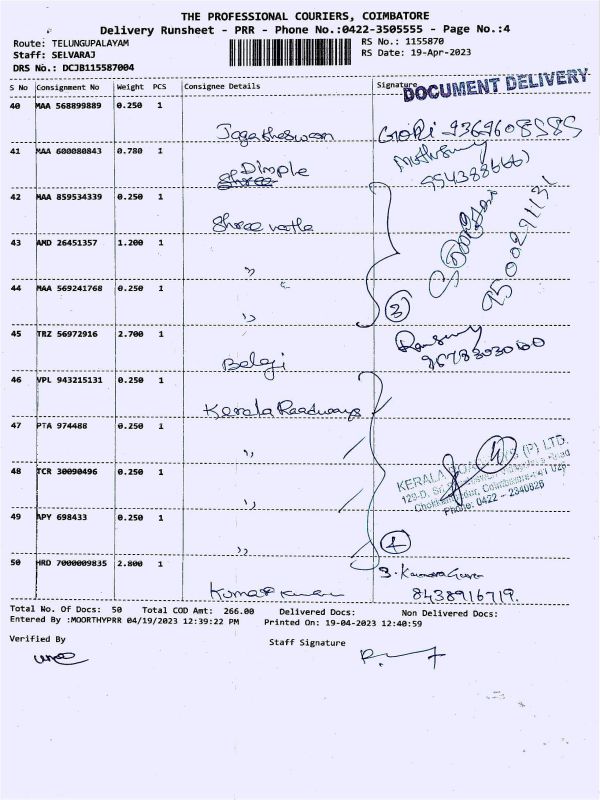 THE PROFESSIONAL COURIERS, COIMBATORE
Delivery Runsheet - PRR - Phone No.:0422-3505555 - Page No.:4
Route: TELUNGUPALAYAM RS No.: 1155870
Staff: SELVARAJ RS Date: 19-Apr-2023
DRS No.: DCJB115587004
S No Consignment No Weight PCS Consignee Details Signature
DOCUMENT DELIVERY
40 MAA 568899889 0.250 1
Jagatheswaran GOPI 9369608585
41 MAA 600080843 0.780 1
Dimple
42 MAA 859534339 0.250 1
Shree
43 AMD 26451357 1.200 1
"
44 MAA 569241768 0.250 1
" 3
45 TRZ 56972916 2.700 1
Balaji
46 VPL 943215131 0.250 1
Kerala Roadways
47 PTA 974488 0.250 1
"
KERALA ROADWAYS (P) LTD.
48 TCR 30090496 0.250 1
"
Phone: 0422 - 2340826
49 APY 698433 0.250 1
" 4
50 HRD 7000009835 2.800 1
Kumar 8438916719.
Total No. Of Docs: 50 Total COD Amt: 266.00 Delivered Docs: Non Delivered Docs:
Entered By :MOORTHYPRR 04/19/2023 12:39:22 PM Printed On: 19-04-2023 12:40:59
Verified By Staff Signature